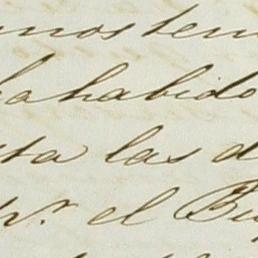 mos ten
ha habido
sta las d
pr. el Bu